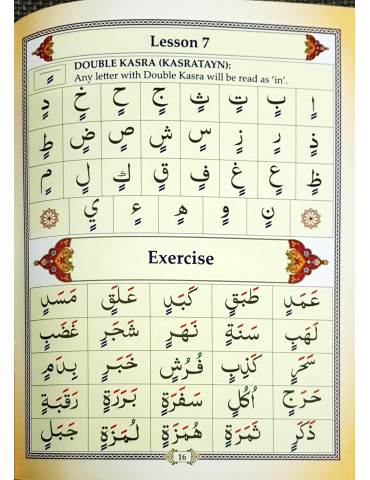 Lesson 7
DOUBLE KASRA (KASRATAYN):
Any letter with Double Kasra will be read as ‘in’.
ٍ
اٍ بٍ تٍ ثٍ جٍ حٍ خٍ دٍ
ذٍ رٍ زٍ سٍ شٍ صٍ ضٍ طٍ
ظٍ عٍ غٍ فٍ قٍ كٍ لٍ مٍ
نٍ وٍ هٍ ءٍ يٍ
Exercise
عَمَدٍ طَبَقٍ كَبَدٍ عَلَقٍ مَسَدٍ
لَهَبٍ سَنَةٍ نَهَرٍ شَجَرٍ غَضَبٍ
سَحَرٍ كَذِبٍ فُرُشٍ خَبَرٍ بِدَمٍ
حَرَجٍ اُكُلٍ سَفَرَةٍ بَرَرَةٍ رَقَبَةٍ
ذَكَرٍ ثَمَرَةٍ هُمَزَةٍ لُمَزَةٍ جَبَلٍ
16